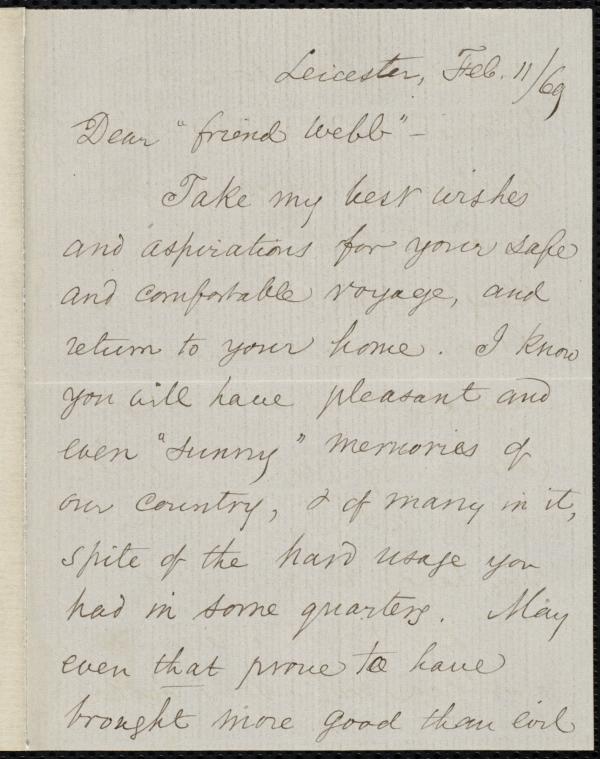 Leicester, Feb. 11/69
Dear "friend Webb" -
Take my best wishes
and aspirations for your safe
and comfortable voyage, and
return to your home. I know
you will have pleasant and
even "sunny" memories of
our country, & of many in it,
spite of the hard usage you
had in some quarters. May
even that prove to have
brought more good than evil